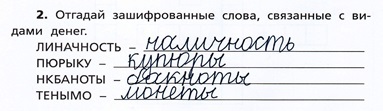 2. Отгадай зашифрованные слова, связанные с ви-
дами денег.
ЛИНАЧНОСТЬ – наличность
ПЮРЫКУ – купюры
НКБАНОТЫ – банкноты
ТЕНЫМО – монеты